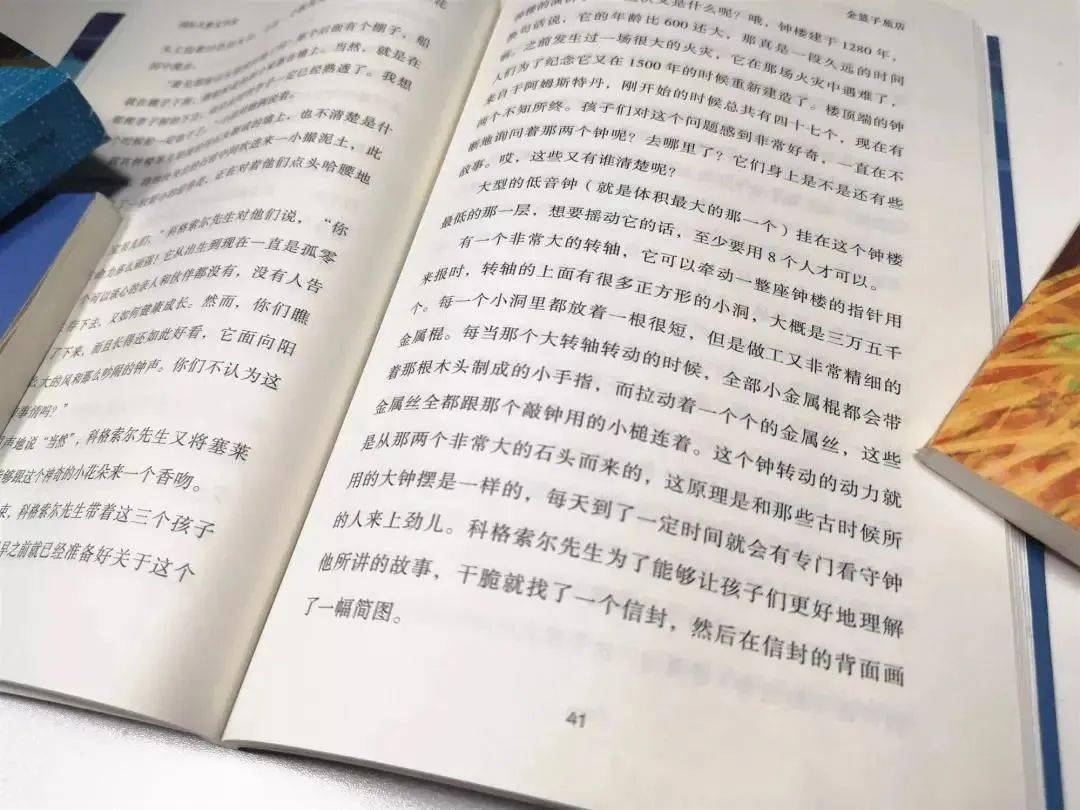 花
个后面有个棚子，船
当然，就是在
一定已经熟透了。我想
也不清楚是什
小撮泥土，此
正在对着他们点头哈腰地
科格索尔先生对他们说，“你
它从出生到现在一直是孤零
个可以谈心的亲人和伙伴都没有，没有人告
下去，又如何健康成长。然而，你们瞧
了下来，而且长得还如此好看，它面向阳
么大的风和那么吵闹的钟声。你们不认为这
事情吗？”
声地说“当然”，科格索尔先生又将塞莱
够跟这个神奇的小花朵来一个香吻。
束，科格索尔先生带着这三个孩子
早之前就已经准备好关于这个
金篮子旅店
又是什么呢？哦，钟楼建于1280年，
换句话说，它的年龄比600还大，那真是一段久远的时间
啊。之前发生过一场很大的火灾，它在那场火灾中遇难了，
人们为了纪念它又在1500年的时候重新建造了。楼顶端的钟
来自于阿姆斯特丹，刚开始的时候总共有四十七个，现在有
两个不知所终。孩子们对这个问题感到非常好奇，一直在不
断地询问着那两个钟呢？去哪里了？它们身上是不是还有些
故事。哎，这些又有谁清楚呢？
大型的低音钟（就是体积最大的那一个）挂在这个钟楼
最低的那一层，想要摇动它的话，至少要用8个人才可以。
有一个非常大的转轴，它可以牵动一整座钟楼的指针用
来报时，转轴的上面有很多正方形的小洞，大概是三万五千
个。每一个小洞里都放着一根很短，但是做工又非常精细的
金属棍。每当那个大转轴转动的时候，全部小金属棍都会带
着那根木头制成的小手指，而拉动着一个个的金属丝，这些
金属丝全都跟那个敲钟用的小槌连着。这个钟转动的动力就
是从那两个非常大的石头而来的，这原理是和那些古时候所
用的大钟摆是一样的，每天到了一定时间就会有专门看守钟
的人来上劲儿。科格索尔先生为了能够让孩子们更好地理解
他所讲的故事，干脆就找了一个信封，然后在信封的背面画
了一幅简图。
41